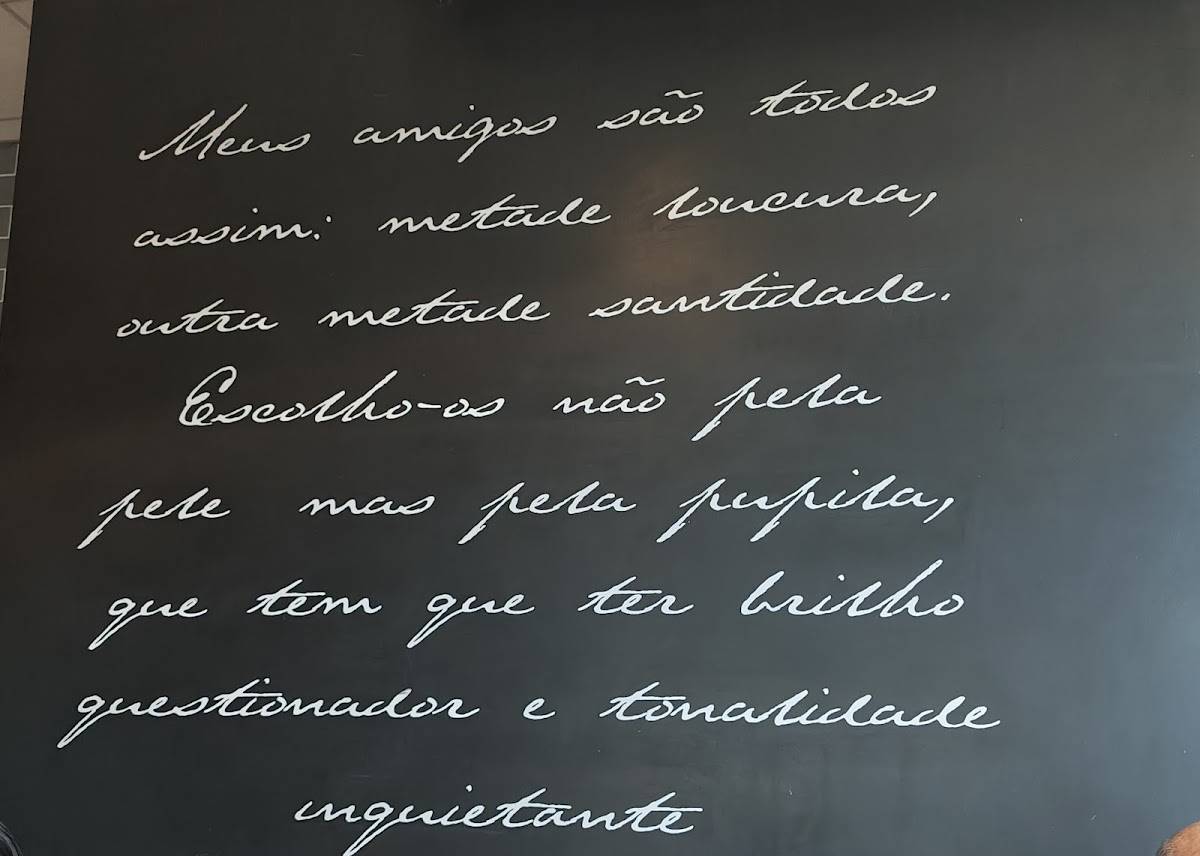 Meus amigos são todos
assim: metade loucura,
outra metade santidade.
Escolho-os não pela
pele mas pela pupila,
que tem que ter brilho
questionador e tonalidade
inquietante